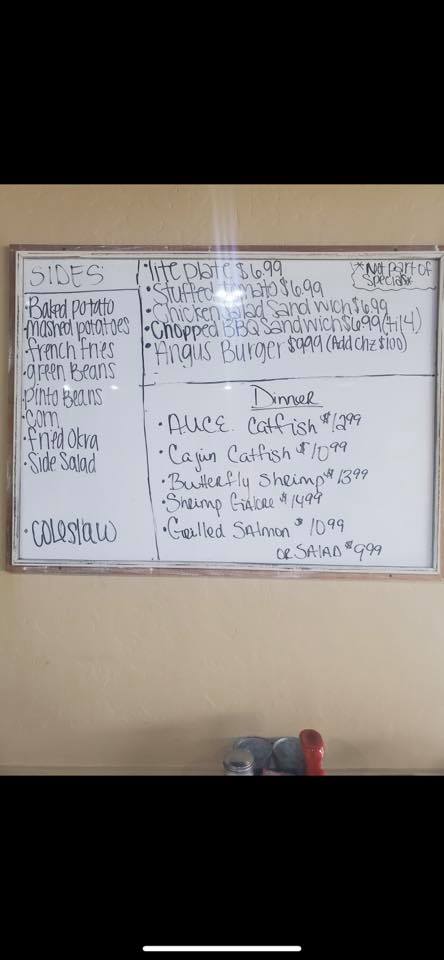 SIDES
• Baked Potato
• mashed potatoes
• french fries
• green Beans
• Pinto Beans
• Corn
• fried Okra
• Side Salad
• COleslaw
• lite plate $6.99
• Stuffed tomato $6.99
• Chicken Salad Sandwich $6.99
• Chopped BBQ Sandwich $6.99 (til 4)
• Angus Burger $9.99 (Add chz $1.00)
* Not part of
Specials*
Dinner
• A.U.C.E. Catfish $12.99
• Cajun Catfish $10.99
• Butterfly Shrimp $13.99
• Shrimp Galore $14.99
• Grilled Salmon $10.99
OR SALAD $9.99